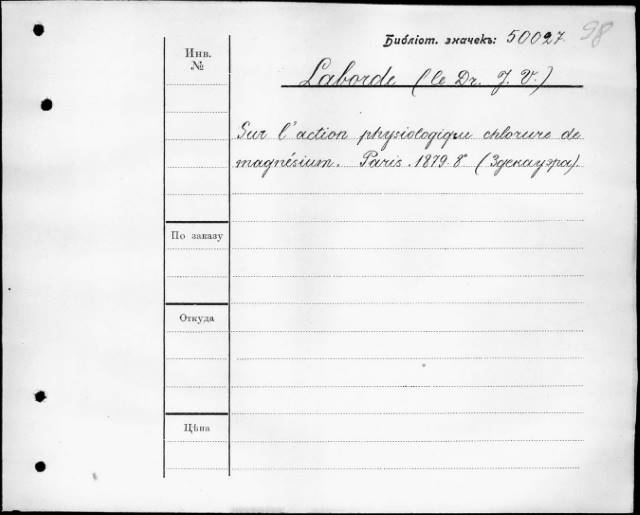 Библіот. значекъ: 50027 98
Инв.
№
Laborde (le Dr. J. V.)
Sur l'action physiologique chlorure de
magnésium. Paris. 1879. 8° (Здекауэра).
По заказу
Откуда
Цѣна